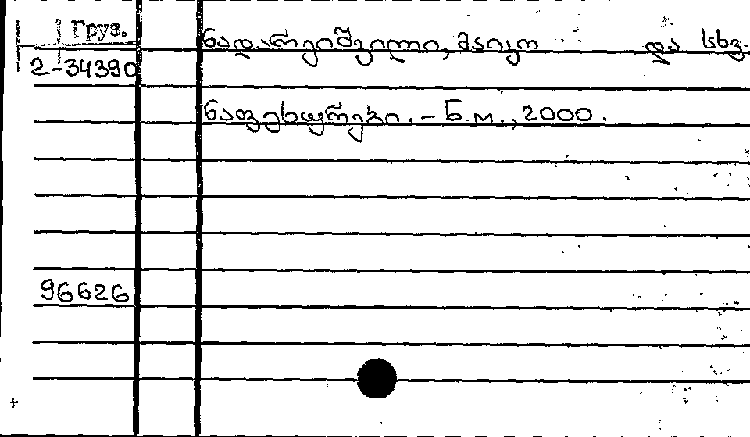 Груз.
ნადარეიშვილი, მაიკო და სხვ.
2-34390
ნაფეხურები. – Б.м., 2000.
96626